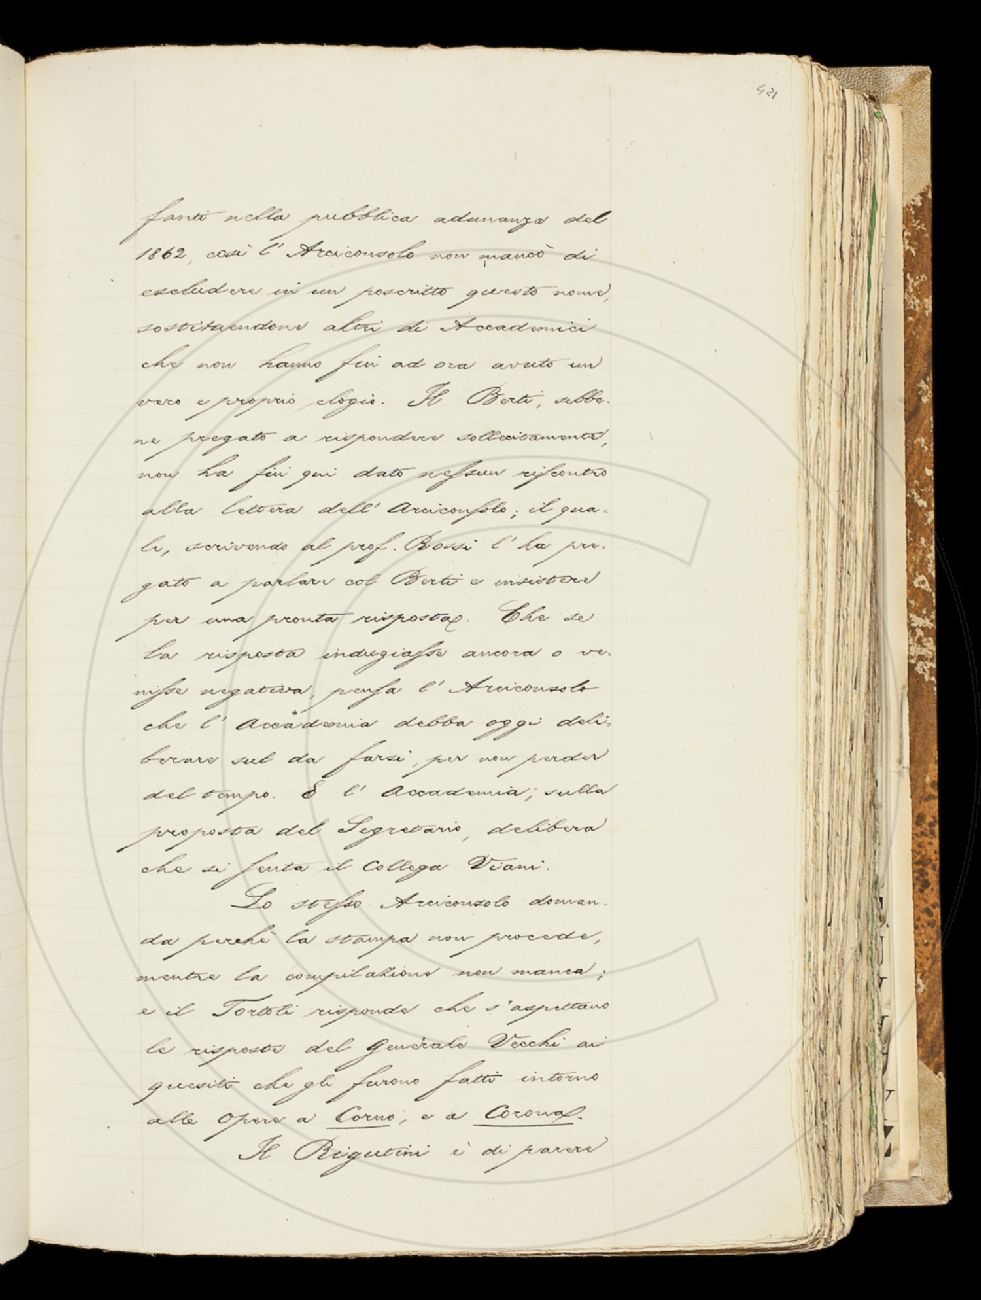 421
fanti nella pubblica adunanza del
1862, così l'Arciconsolo non mancò di
escludere in un poscritto questo nome,
sostituendone altri di Accademici
che non hanno fin ad ora avuto un
vero e proprio elogio. Il Berti, sebbe-
ne pregato a rispondere sollecitamente,
non ha fin qui dato nessun riscontro
alla lettera dell'Arciconsolo; il qua-
le, scrivendo al prof. Rossi l'ha pre-
gato a parlare col Berti e insistere
per una pronta risposta. Che se
la risposta indugiasse ancora o ve-
nisse negativa, pensa l'Arciconsolo
che l'Accademia debba oggi deli-
berare sul da farsi, per non perder
del tempo. E l'Accademia; sulla
proposta del Segretario, delibera
che si senta il Collega Viani.
Lo stesso Arciconsolo doman-
da perchè la stampa non procede,
mentre la compilazione non manca;
e il Tortoli risponde che s'aspettano
le risposte del Generale Vecchi ai
quesiti che gli furono fatti intorno
alle Opere a Corno, e a Corona.
Il Rigutini è di parere